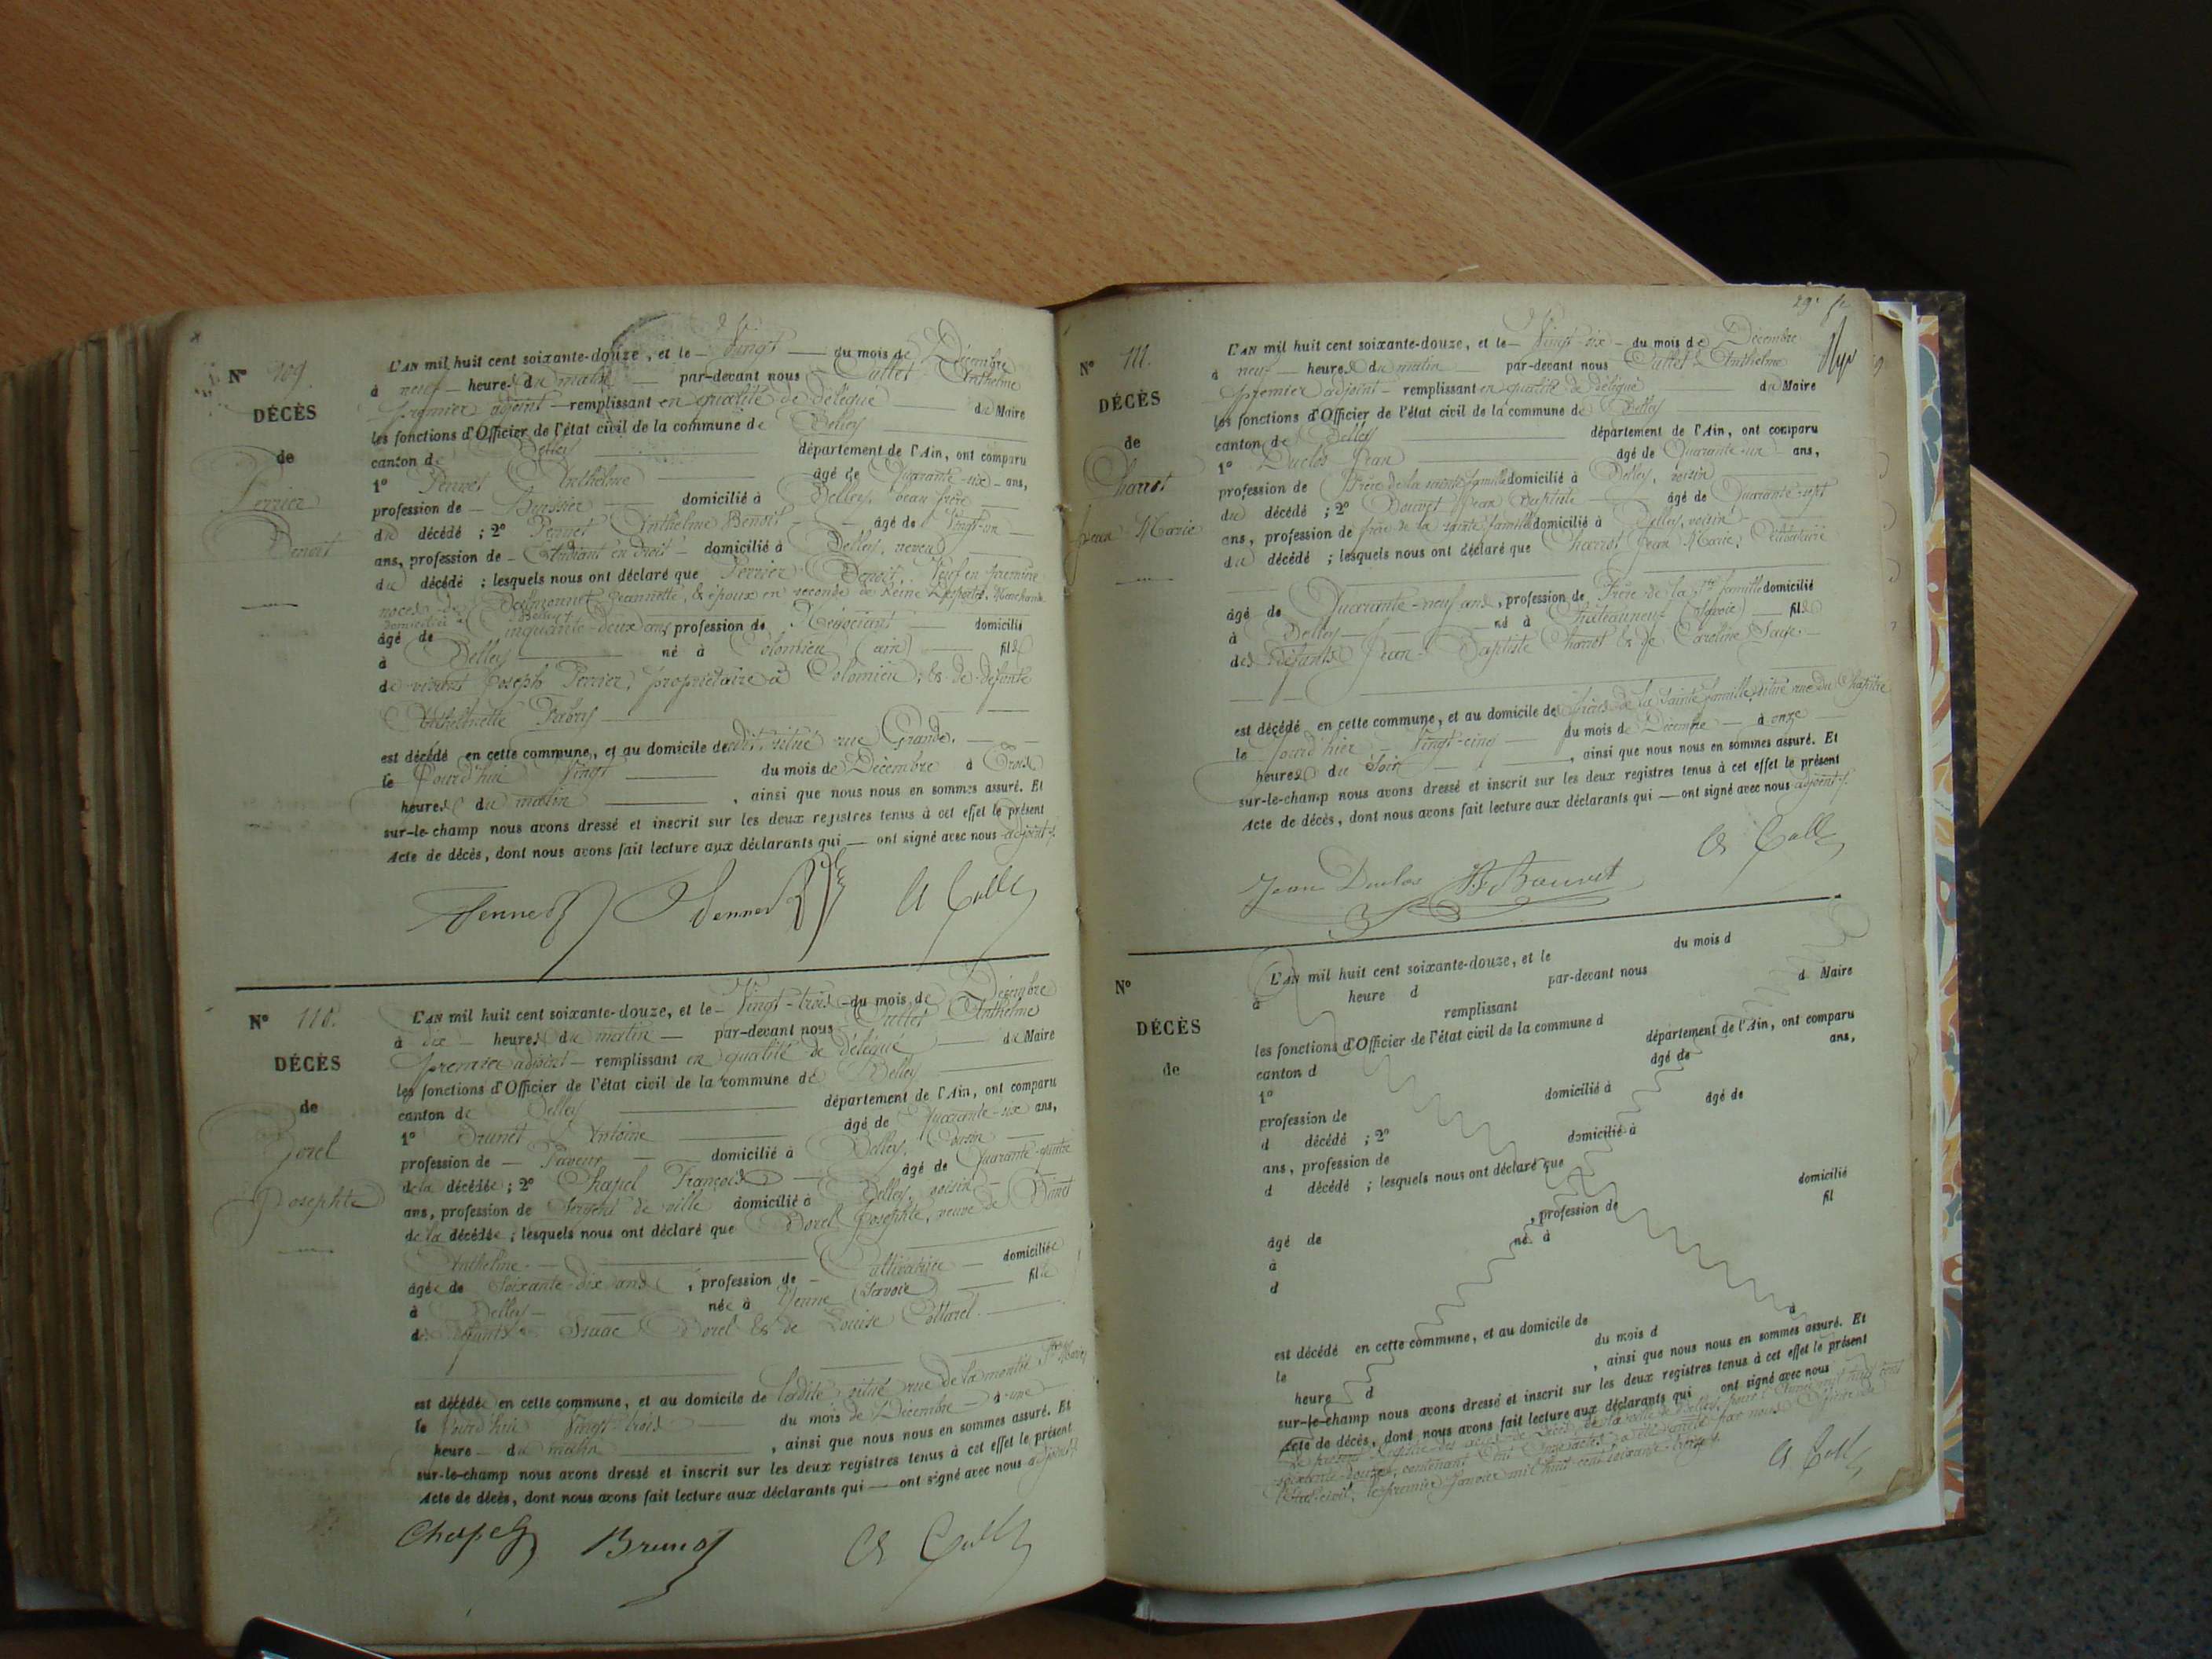 N° 109.
DÉCÈS
de
Perrier
Benoit
L'AN mil huit cent soixante-douze, et le Vingt du mois de Décembre
à neuf heures du matin par-devant nous Cullet Anthelme
premier adjoint remplissant en qualité de délégué du Maire
les fonctions d'Officier de l'état civil de la commune de Belley
canton de Belley département de l'Ain, ont comparu
1° Anthelme âgé de Quarante-six ans,
profession de Huissier domicilié à Belley, beau frère
du décédé ; 2° Anthelme Benoit âgé de Vingt-un
ans, profession de Etudiant en droit domicilié à Belley, neveu
du décédé ; lesquels nous ont déclaré que Perrier Benoit, Veuf en première
noces de Jeannette, & époux en seconde de Reine Marchande
domiciliée à Belley
âgé de Cinquante-deux ans, profession de Négociant domicilié
à Belley né à Colomieu (ain) fils
de vivant Joseph Perrier, propriétaire à Colomieu, & de défunte
Anthelmette
est décédé en cette commune, et au domicile dudit, situé rue Grande.
le Jourd'hui Vingt du mois de Décembre à Trois
heures du matin , ainsi que nous nous en sommes assuré. Et
sur-le-champ nous avons dressé et inscrit sur les deux registres tenus à cet effet le présent
Acte de décès, dont nous avons fait lecture aux déclarants qui ont signé avec nous adjoint
N° 110.
DÉCÈS
de
Borel
Josephte
L'AN mil huit cent soixante-douze, et le Vingt-trois du mois de Décembre
à dix heures du matin par-devant nous Cullet Anthelme
premier adjoint remplissant en qualité de délégué du Maire
les fonctions d'Officier de l'état civil de la commune de Belley
canton de Belley département de l'Ain, ont comparu
1° Brunet Antoine âgé de Quarante-six ans,
profession de Paveur domicilié à Belley, voisin
de la décédée ; 2° Chapel François âgé de Quarante-quatre
ans, profession de Sergent de ville domicilié à Belley, voisin
de la décédée ; lesquels nous ont déclaré que Borel Josephte, veuve de
Anthelme
âgée de Soixante-dix ans, profession de Cultivatrice domiciliée
à Belley née à Yenne (Savoie) fille
des défunts Isaac Borel & de Louise
est décédée en cette commune, et au domicile de ladite, situé rue de la montée Ste Marie
le Jourd'hui Vingt-trois du mois de Décembre à une
heure du matin , ainsi que nous nous en sommes assuré. Et
sur-le-champ nous avons dressé et inscrit sur les deux registres tenus à cet effet le présent
Acte de décès, dont nous avons fait lecture aux déclarants qui ont signé avec nous adjoint
Chapel Brunet
N° 111.
DÉCÈS
de
Charrot
Jean Marie
L'AN mil huit cent soixante-douze, et le Vingt-six du mois de Décembre
à neuf heures du matin par-devant nous Cullet Anthelme
premier adjoint remplissant en qualité de délégué du Maire
les fonctions d'Officier de l'état civil de la commune de Belley
canton de Belley département de l'Ain, ont comparu
1° Duclos Jean âgé de Quarante-un ans,
profession de Frère de la sainte famille domicilié à Belley, voisin
du décédé ; 2° Bouvet Jean Baptiste âgé de Quarante-sept
ans, profession de frère de la sainte famille domicilié à Belley, voisin
du décédé ; lesquels nous ont déclaré que Charrot Jean Marie, Célibataire
âgé de Quarante-neuf ans, profession de Frère de la Ste famille domicilié
à Belley né à Châteauneuf (Savoie) fils
des défunts Jean-Baptiste Charrot & de Caroline
est décédé en cette commune, et au domicile des frères de la Sainte famille, situé rue du Chapitre
le Jourd'hier Vingt-cinq du mois de Décembre à onze
heures du Soir , ainsi que nous nous en sommes assuré. Et
sur-le-champ nous avons dressé et inscrit sur les deux registres tenus à cet effet le présent
Acte de décès, dont nous avons fait lecture aux déclarants qui ont signé avec nous adjoint
Jean Duclos Bouvet
N°
DÉCÈS
de
L'AN mil huit cent soixante-douze, et le du mois d
à heure d par-devant nous
remplissant d Maire
les fonctions d'Officier de l'état civil de la commune d
canton d département de l'Ain, ont comparu
1° âgé de ans,
profession de domicilié à
d décédé ; 2° âgé de
ans, profession de domicilié à
d décédé ; lesquels nous ont déclaré que
âgé de , profession de domicilié
à né à fil
d
est décédé en cette commune, et au domicile de
le du mois d à
heure d , ainsi que nous nous en sommes assuré. Et
sur-le-champ nous avons dressé et inscrit sur les deux registres tenus à cet effet le présent
Acte de décès, dont nous avons fait lecture aux déclarants qui ont signé avec nous
Le présent Registre des actes de Décès de la ville de Belley, pour l'année mil huit cent
soixante-douze, contenant Cent Onze actes, a été arrêté par nous Officier de
l'Etat-civil, le premier Janvier mil huit cent soixante-treize.